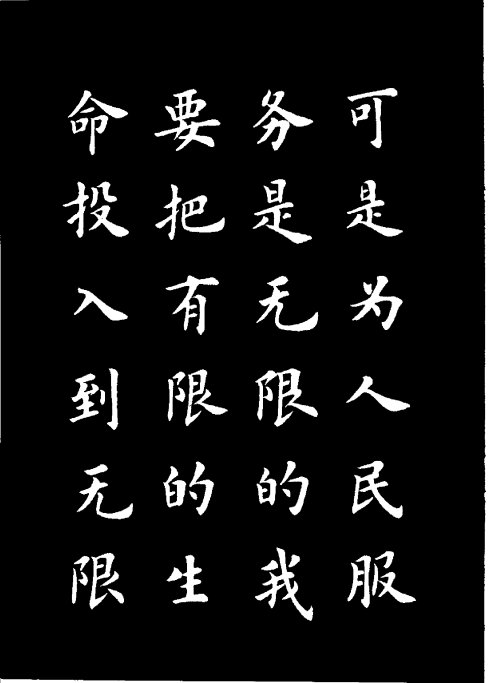 可是为人民服
务是无限的我
要把有限的生
命投入到无限